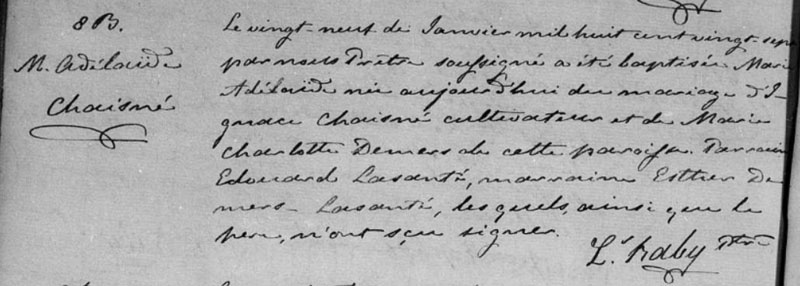 8 B.
M. Adélaïde
Chaisné
Le vingt-neuf de Janvier mil huit cent vingt-sept
par nous Prêtre soussigné a été baptisée Marie
Adélaïde née aujourd'hui du mariage d'I-
gnace Chaisné cultivateur et de Marie
Charlotte Demers de cette paroisse. Parrain
Edouard Lasanté, marraine Esther De
mers Lasanté, lesquels, ainsi que le
pere, n'ont sçu signer.
Ls Raby Ptre